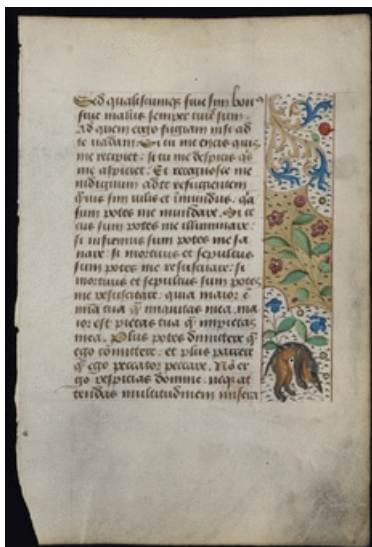 Sed qualiscumqꝫ siue sim bonꝰ
siue malus semper tuus sum.
Ad quem ergo fugiam nisi ad
te uadam. Si tu me eicis quis
me recipiet: si tu me despicis qs
me aspiciet. Et recognosce me
indignum ad te refugientem
quis sim uilis et imundus. qa
sum potes me mundare. Si ce
cus sum potes me illuminare:
si infirmus sum potes me sa
nare: si mortuus et sepultus
sum potes me resuscitare: si
mortuus et sepultus sum potes
me resuscitare. quia maior ē
mīa tua q̄ iniquitas mea. ma
ior est pietas tua q̄ impietas
mea. Plus potes dimittere q̄
ego cōmittere. et plus parcere
q̄ ego peccator peccare. Nō er
go respicias domine. neqꝫ at
tendas multitudinem misera